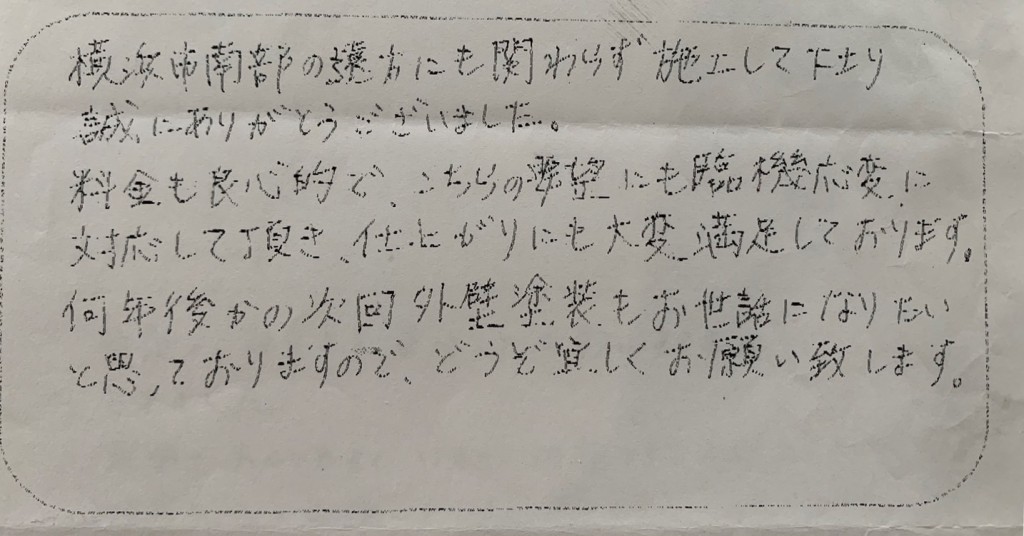 横浜市南部の遠方にも関わらず施工して下さり
誠にありがとうございました。
料金も良心的で、こちらの要望にも臨機応変に
対応して頂き、仕上がりにも大変満足しております。
何年後かの次回外壁塗装もお世話になりたい
と思っておりますので、どうぞ宜しくお願い致します。